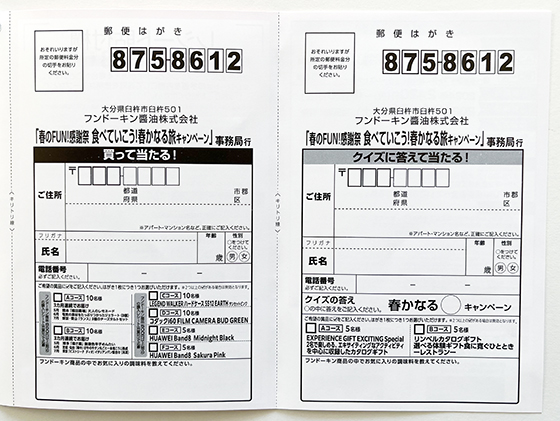 郵便はがき
おそれいりますが
所定の郵便料金分
の切手をお貼り
ください。
875-8612
大分県臼杵市臼杵501
フンドーキン醤油株式会社
「春のFUN!感謝祭 食べていこう!春かなる旅キャンペーン」事務局行
買って当たる!
〒
ご住所
都道
府県
市郡
区
※アパート・マンション名など、正確にご記入ください。
フリガナ
氏名
年齢
歳
性別
○をつけて
ください。
男 女
電話番号
必ずご記入ください。
Aコース 10名様
3カ月連続でお届け
Bコース 10名様
3カ月連続でお届け
Cコース 10名様
LEGEND WALKER ハードケース 5512 EARTH
Dコース 10名様
コダック i60 FILM CAMERA BUD GREEN
Eコース 5名様
HUAWEI Band8 Midnight Black
Fコース 5名様
HUAWEI Band8 Sakura Pink
フンドーキン商品の中でお気に入りの調味料を教えてください。
キリトリ線
郵便はがき
おそれいりますが
所定の郵便料金分
の切手をお貼り
ください。
875-8612
大分県臼杵市臼杵501
フンドーキン醤油株式会社
「春のFUN!感謝祭 食べていこう!春かなる旅キャンペーン」事務局行
クイズに答えて当たる!
〒
ご住所
都道
府県
市郡
区
※アパート・マンション名など、正確にご記入ください。
フリガナ
氏名
年齢
歳
性別
○をつけて
ください。
男 女
電話番号
必ずご記入ください。
クイズの答え
○の中に答えをご記入ください。
春かなる○キャンペーン
Aコース 5名様
EXPERIENCE GIFT EXCITING Special
2名で楽しめる、エキサイティングなアクティビティ
を中心に収録したカタログギフト
Bコース 5名様
リンベルカタログギフト
選べる体験ギフト食に寛ぐひととき
ーレストランー
フンドーキン商品の中でお気に入りの調味料を教えてください。
キリトリ線